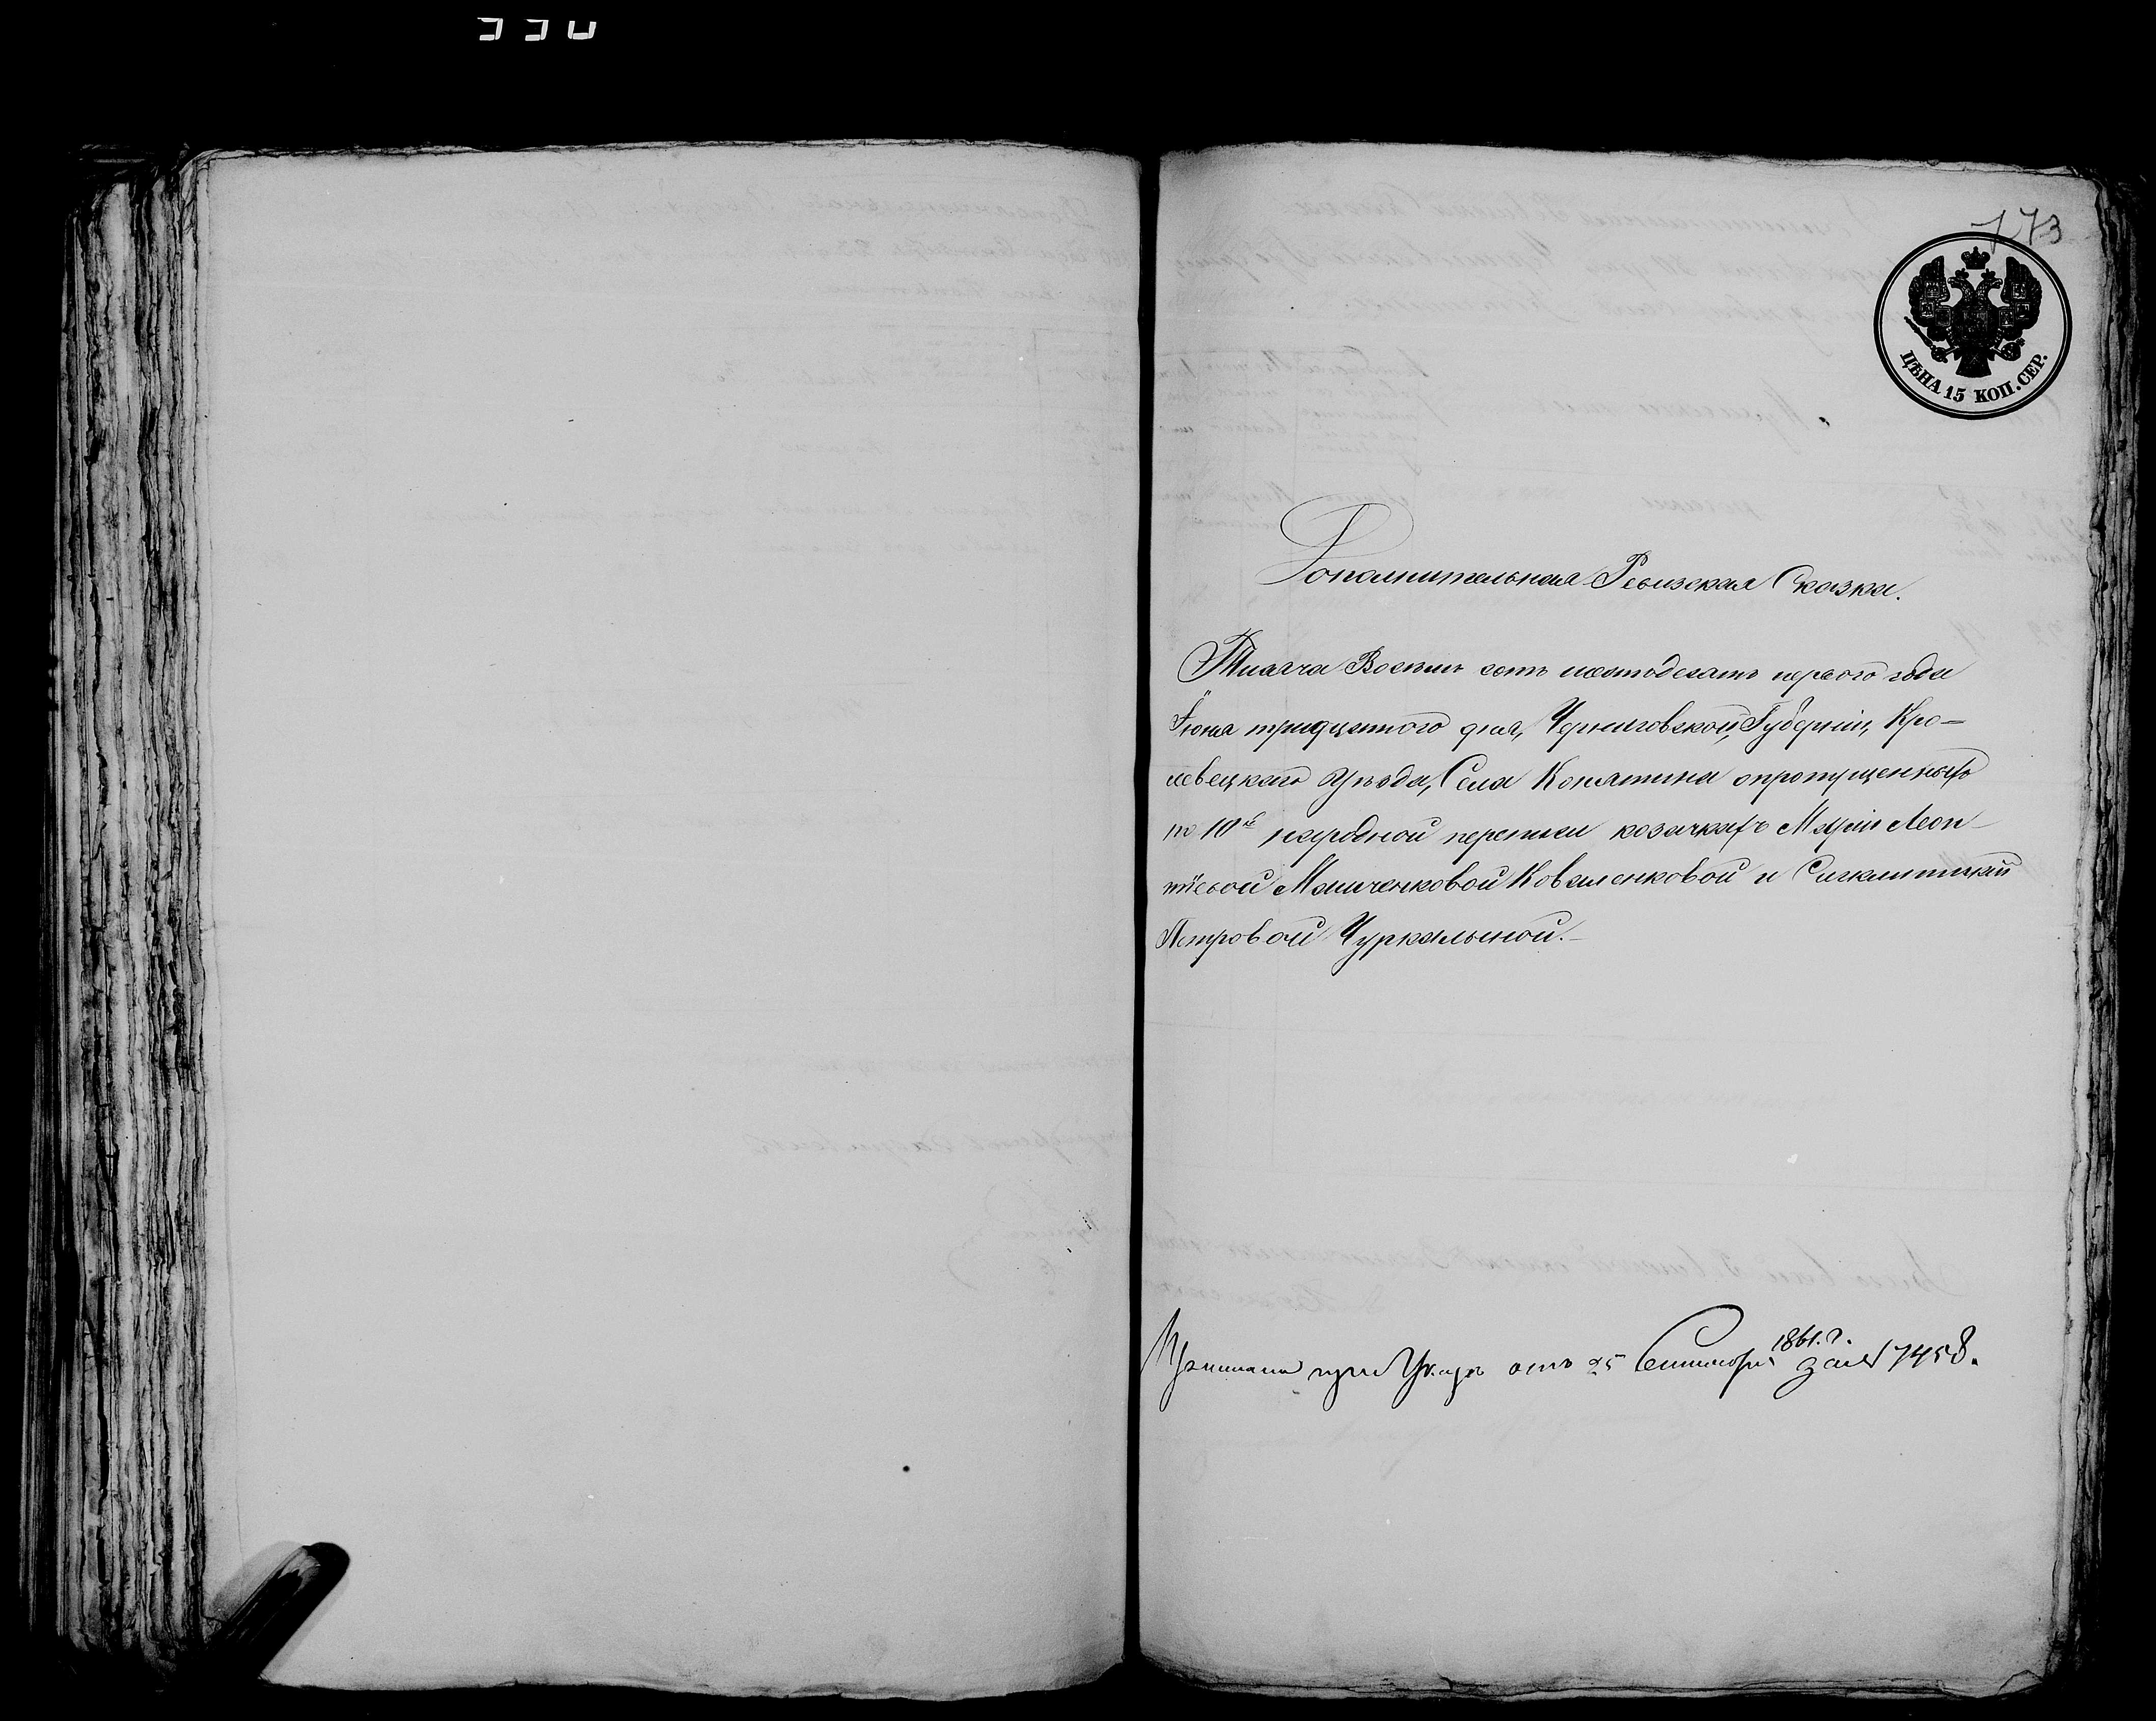 773
ЦѢНА 15 КОП. СЕР.
Дополнительная Ревизская Сказка.
Тысяча Восемь сотъ шестьдесятъ перваго года
Іюня тридцатого дня, Черниговской Губерніи, Кро-
левецкаго Уѣзда, Села Конятина опропущенныхъ
по 10й народной переписи козачкахъ Маріи Леон-
тіевой Коваленковой и Синклитикіи
Петровой Чуркальиной.
при Указѣ отъ 25 Сентября 1861. г. за № 7458.